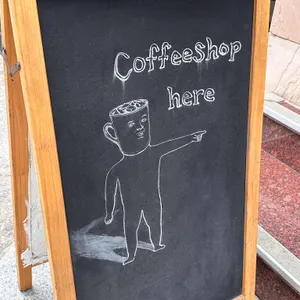 CoffeeShop
here